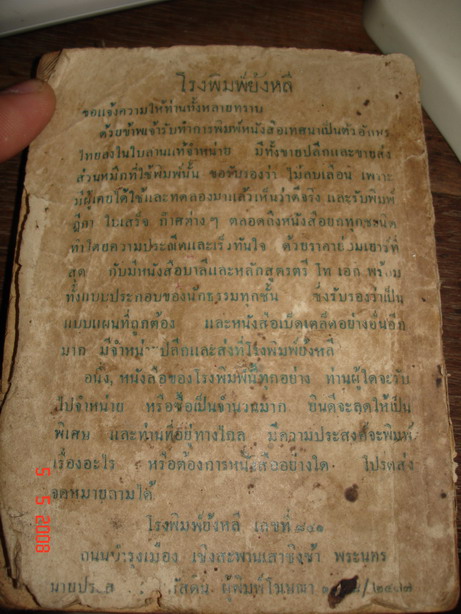 โรงพิมพ์ย้งหลี
ขอแจ้งความให้ท่านทั้งหลายทราบ
ด้วยข้าพเจ้ารับทำการพิมพ์หนังสือเทศนาเป็นตัวอักษร
ไทยลงในใบลานแท้จำหน่าย มีทั้งขายปลีกและขายส่ง
ส่วนหมึกที่ใช้พิมพ์นั้น ขอรับรองว่า ไม่ลบเลือน เพราะ
มีผู้เคยได้ใช้และทดลองมาแล้วเห็นว่าดีจริง และรับพิมพ์
ฎีกา ใบเสร็จ ก๊าศต่าง ๆ ตลอดถึงหนังสือยกทุกชะนิด
ทำโดยความประณีตและเร็วทันใจ ด้วยราคาย่อมเยาที่
สุด กับมีหนังสือบาลีและหลักสูตรตรี โท เอก พร้อม
ทั้งแบบประกอบของนักธรรมทุกชั้น ซึ่งรับรองว่าเป็น
แบบแผนที่ถูกต้อง และหนังสือเบ็ดเตล็ดอย่างอื่นอีก
มาก มีจำหน่ายปลีกและส่งที่โรงพิมพ์ย้งหลี
อนึ่ง, หนังสือของโรงพิมพ์นี้ทุกอย่าง ท่านผู้ใดจะรับ
ไปจำหน่าย หรือซื้อเป็นจำนวนมาก ยินดีจะลดให้เป็น
พิเศษ และท่านที่อยู่ทางไกล มีความประสงค์จะพิมพ์
เรื่องอะไร หรือต้องการหนังสืออย่างใด โปรดส่ง
จดหมายถามได้
โรงพิมพ์ย้งหลี เลขที่
ถนนบำรุงเมือง เชิงสะพานเสาชิงช้า พระนคร
ผู้พิมพ์โฆษณา
5 5 2008